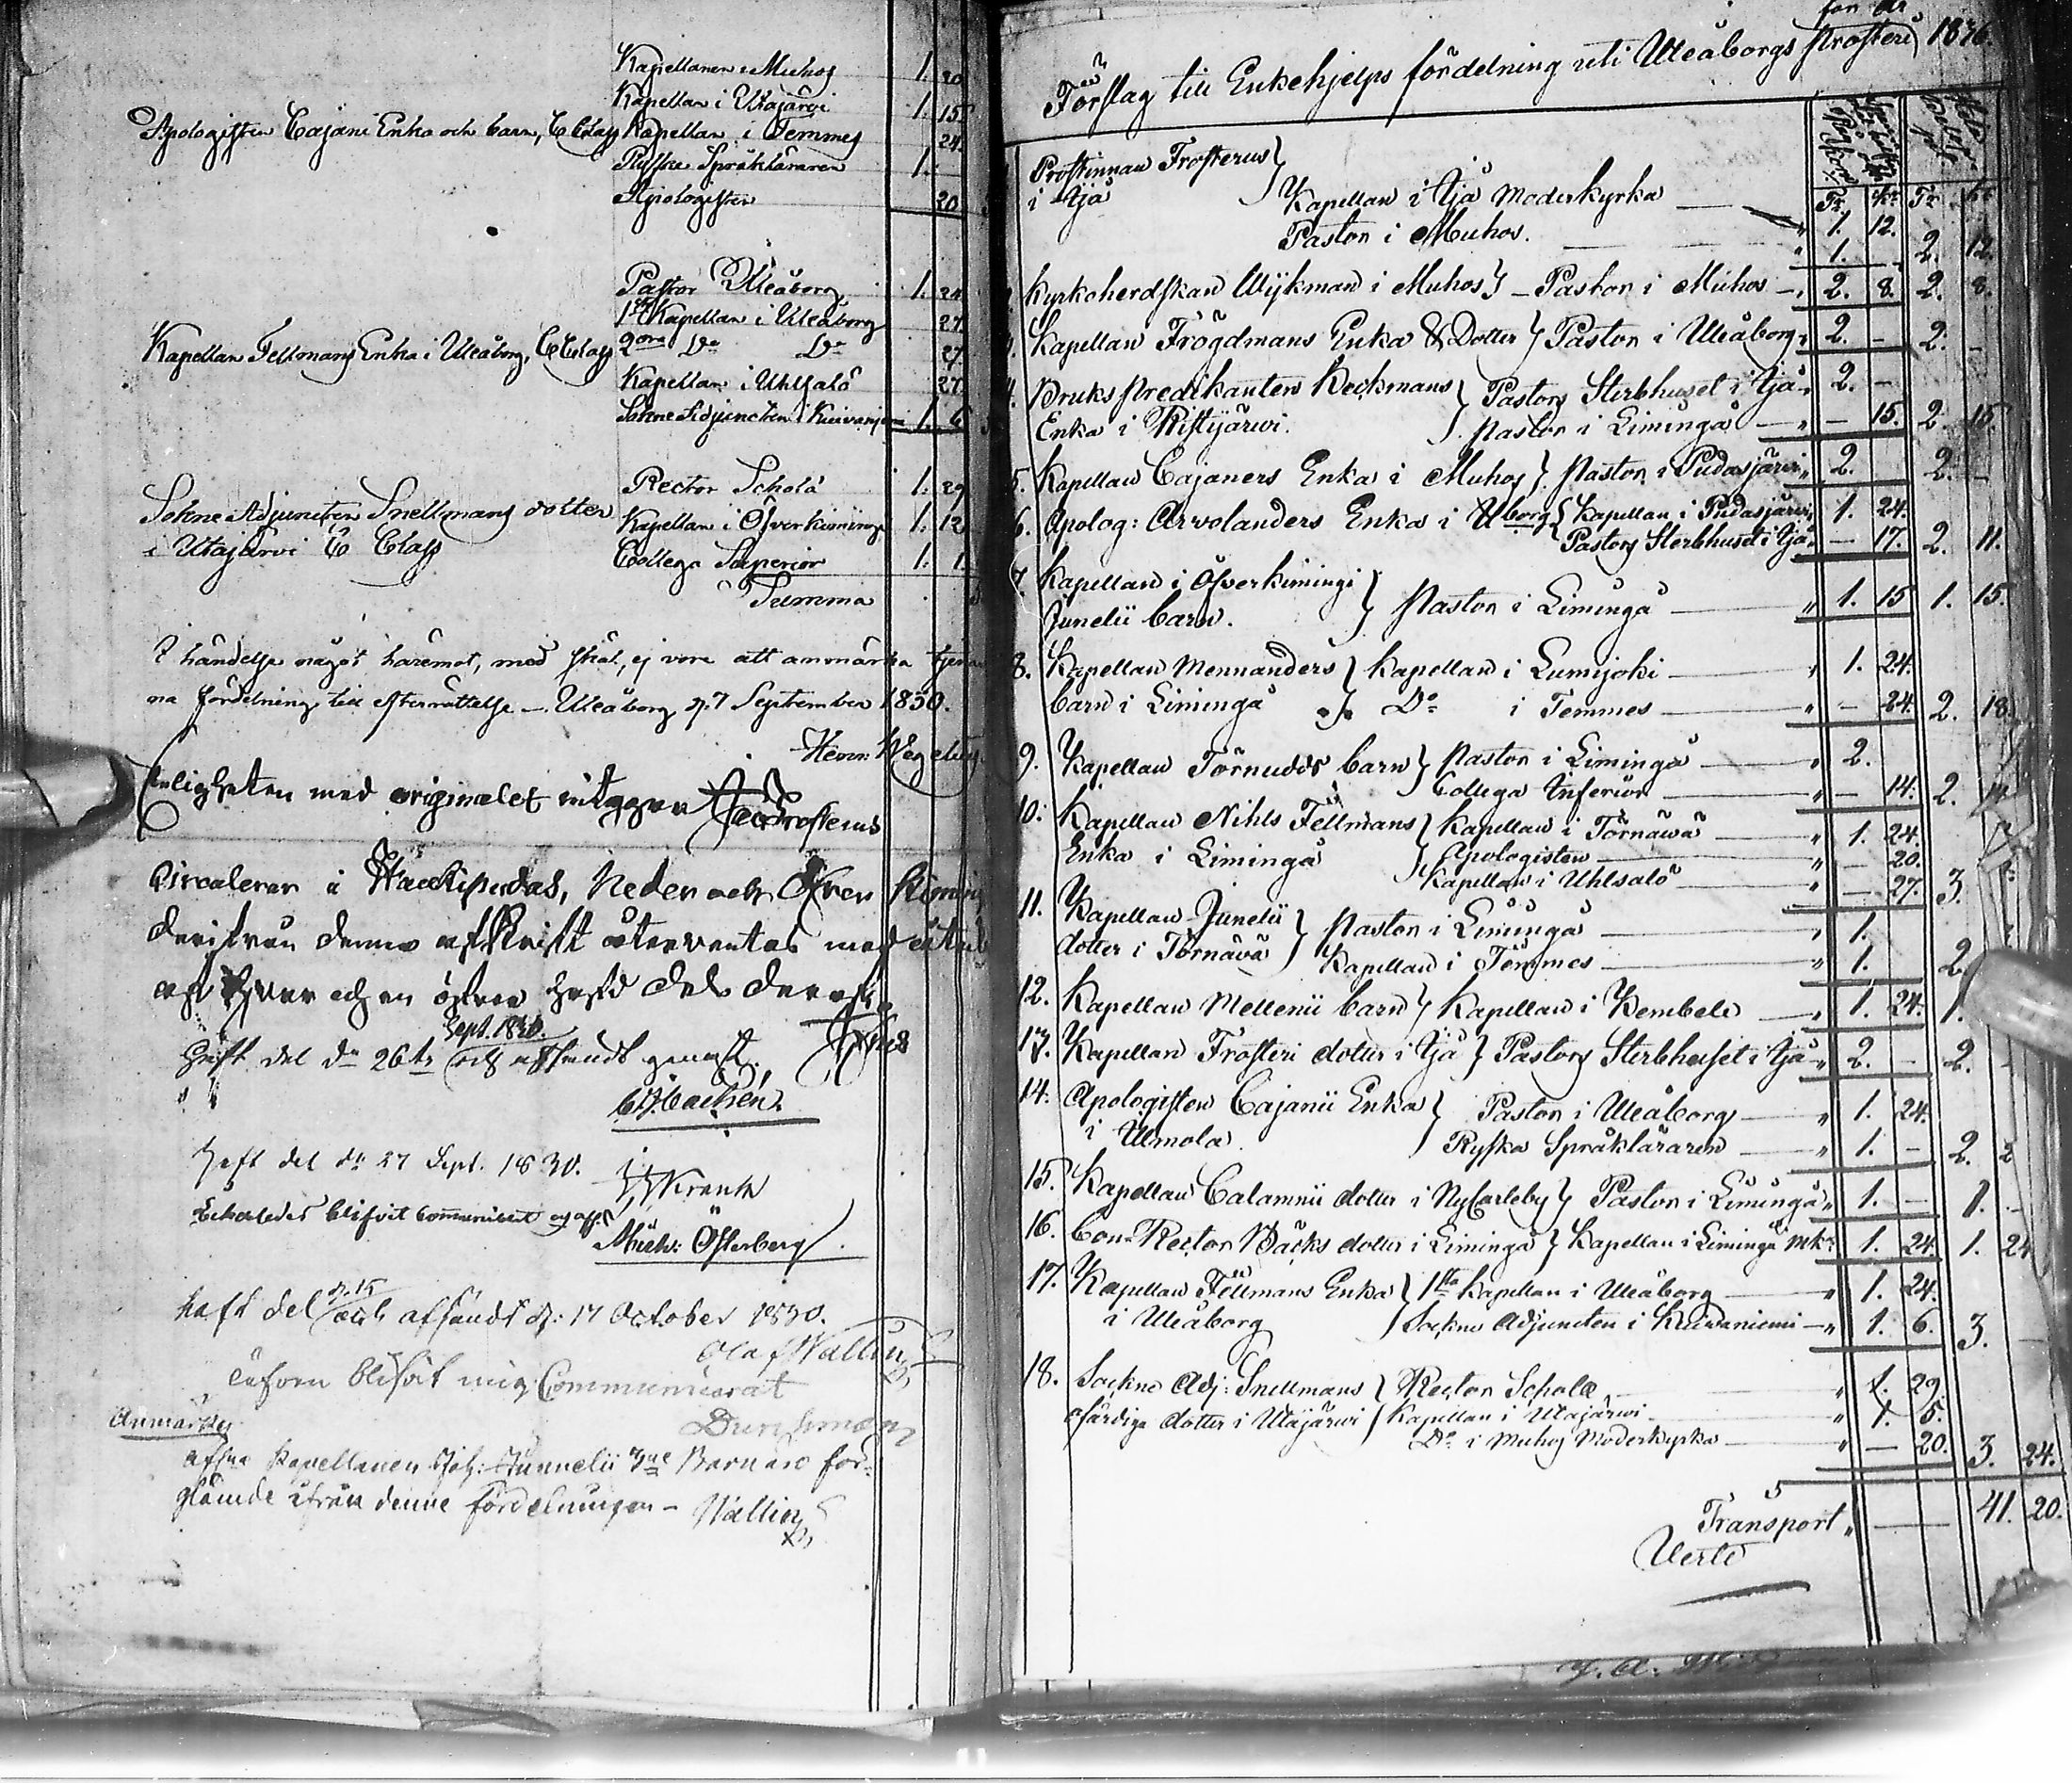 Kapellanen i Muhos 1. 20
Kapellan i Utajärvi 1. 15
Apologisten Cajani Enka och barn, C Class Kapellan i Temmes 24.
Ryska Språkläraren 1. -
Apologisten 20
Pastor Uleåborg 1. 24
1ste Kapellan i Uleåborg 27.
Kapellan Fellmans Enka i Uleåborg, C Class 2dre Do Do 27.
Kapellan i Uhlsalo 27.
Sokne Adjuncten i Kuivaniemi 1. 6
Rector Scholæ 1. 29
Sokne Adjuncten Snellmans dotter Kapellan i Öfverkiminge 1. 12
i Utajärvi C Class Collega Superior 1. 1
Summa
I händelse något häremot, med skäl, ej vore att anmärka tjenar
na fördelning till efterrättelse _ Uleåborg d. 7 September 1830.
Herm: Wegelius
Enligheten med originalet intygar Frosterus
Circulerar i Haukipudas, Neder och Öfver Kiming
derifrån denna afskrift återväntas med
Sept. 1830.
Haft del dn 26te och afsändt genast.
Cajisén
Haft del dn 27 Sept. 1830. Krank
Likaledes blifvit communicerat
Mich: Österberg
d. 15
haft del och afsändt d: 17 October 1830.
Olof Wallin
Äfven blifvit mig Communicerat
Durchman
Anmärkes
Kapellanen Joh: Junnelii Barn äro för-
glömde ifrån denne fördelningen - Wallin
för år
Förslag till Enkehjelps fördelning uti Uleåborgs Prosteri 1836.
Prostinnan Frosterus
i Ijå Kapellan i Ijå Moderkyrka 1. 12.
Pastor i Muhos. 1. - 2. 12.
Kyrkoherdskan Wijkman i Muhos } - Pastor i Muhos 2. 8. 2. 8.
Kapellan Frögdmans Enka & Dotter } Pastor i Uleåborg 2. - 2. -
4. Bruks Predikanten Keckmans } Pastors Sterbhuset i Ijå 2. -
Enka i Ristijärwi. Pastor i Limingå - 15. 2. 15.
5. Kapellan Cajaners Enka i Muhos } Pastor i Pudasjärwi 2. 2. -
6. Apolog: Arvolanders Enka i Uborg { Kapellan i Pudasjärwi 1. 24.
Pastors Sterbhuset i Ijå - 17. 2. 11.
7. Kapellan i Öfverkimingi
Junelii barn. } Pastor i Limingå 1. 15 1. 15.
8. Kapellan Mennanders } Kapellan i Lumijoki 1. 24.
barn i Limingå Do i Temmes - 24. 2. 18.
9. Kapellan Törnudds barn } Pastor i Limingå 2.
Collega Inferior - 14. 2. 14.
10. Kapellan Nihls Fellmans } Kapellan i Törnäwä 1. 24.
Enka i Limingå Apologisten - 20.
Kapellan i Uhlsalo - 27. 3.
11. Kapellan Junelii } Pastor i Limingå 1.
dotter i Törnävä Kapellan i Temmes 1. 2.
12. Kapellan Mellenii barn } Kapellan i Kembele 1. 24. 1.
13. Kapellan Frosteri dotter i Ijå } Pastors Sterbhuset i Ijå 2. - 2. -
14. Apologisten Cajanii Enka } Pastor i Uleåborg 1. 24.
i Ulmola. Ryska Språkläraren 1. - 2.
15. Kapellan Calamnii dotter i NyCarleby } Pastor i Limingå 1. - 1. -
16. Con-Rector Bäcks dotter i Limingå } Kapellan i Limingå mk: 1. 24. 1. 24
17. Kapellan Fellmans Enka } 1sta Kapellan i Uleåborg 1. 24.
i Uleåborg Sockne Adjuncten i Kuivaniemi 1. 6. 3. -
18. Sockne Adj: Snellmans } Rector Scholæ 1. 29.
ofärdiga dotter i Utajärwi Kapellan i Utajärwi 1. 5.
Do i Muhos Moderkyrka - 20. 3. 24.
Transport 41. 20.
Verte